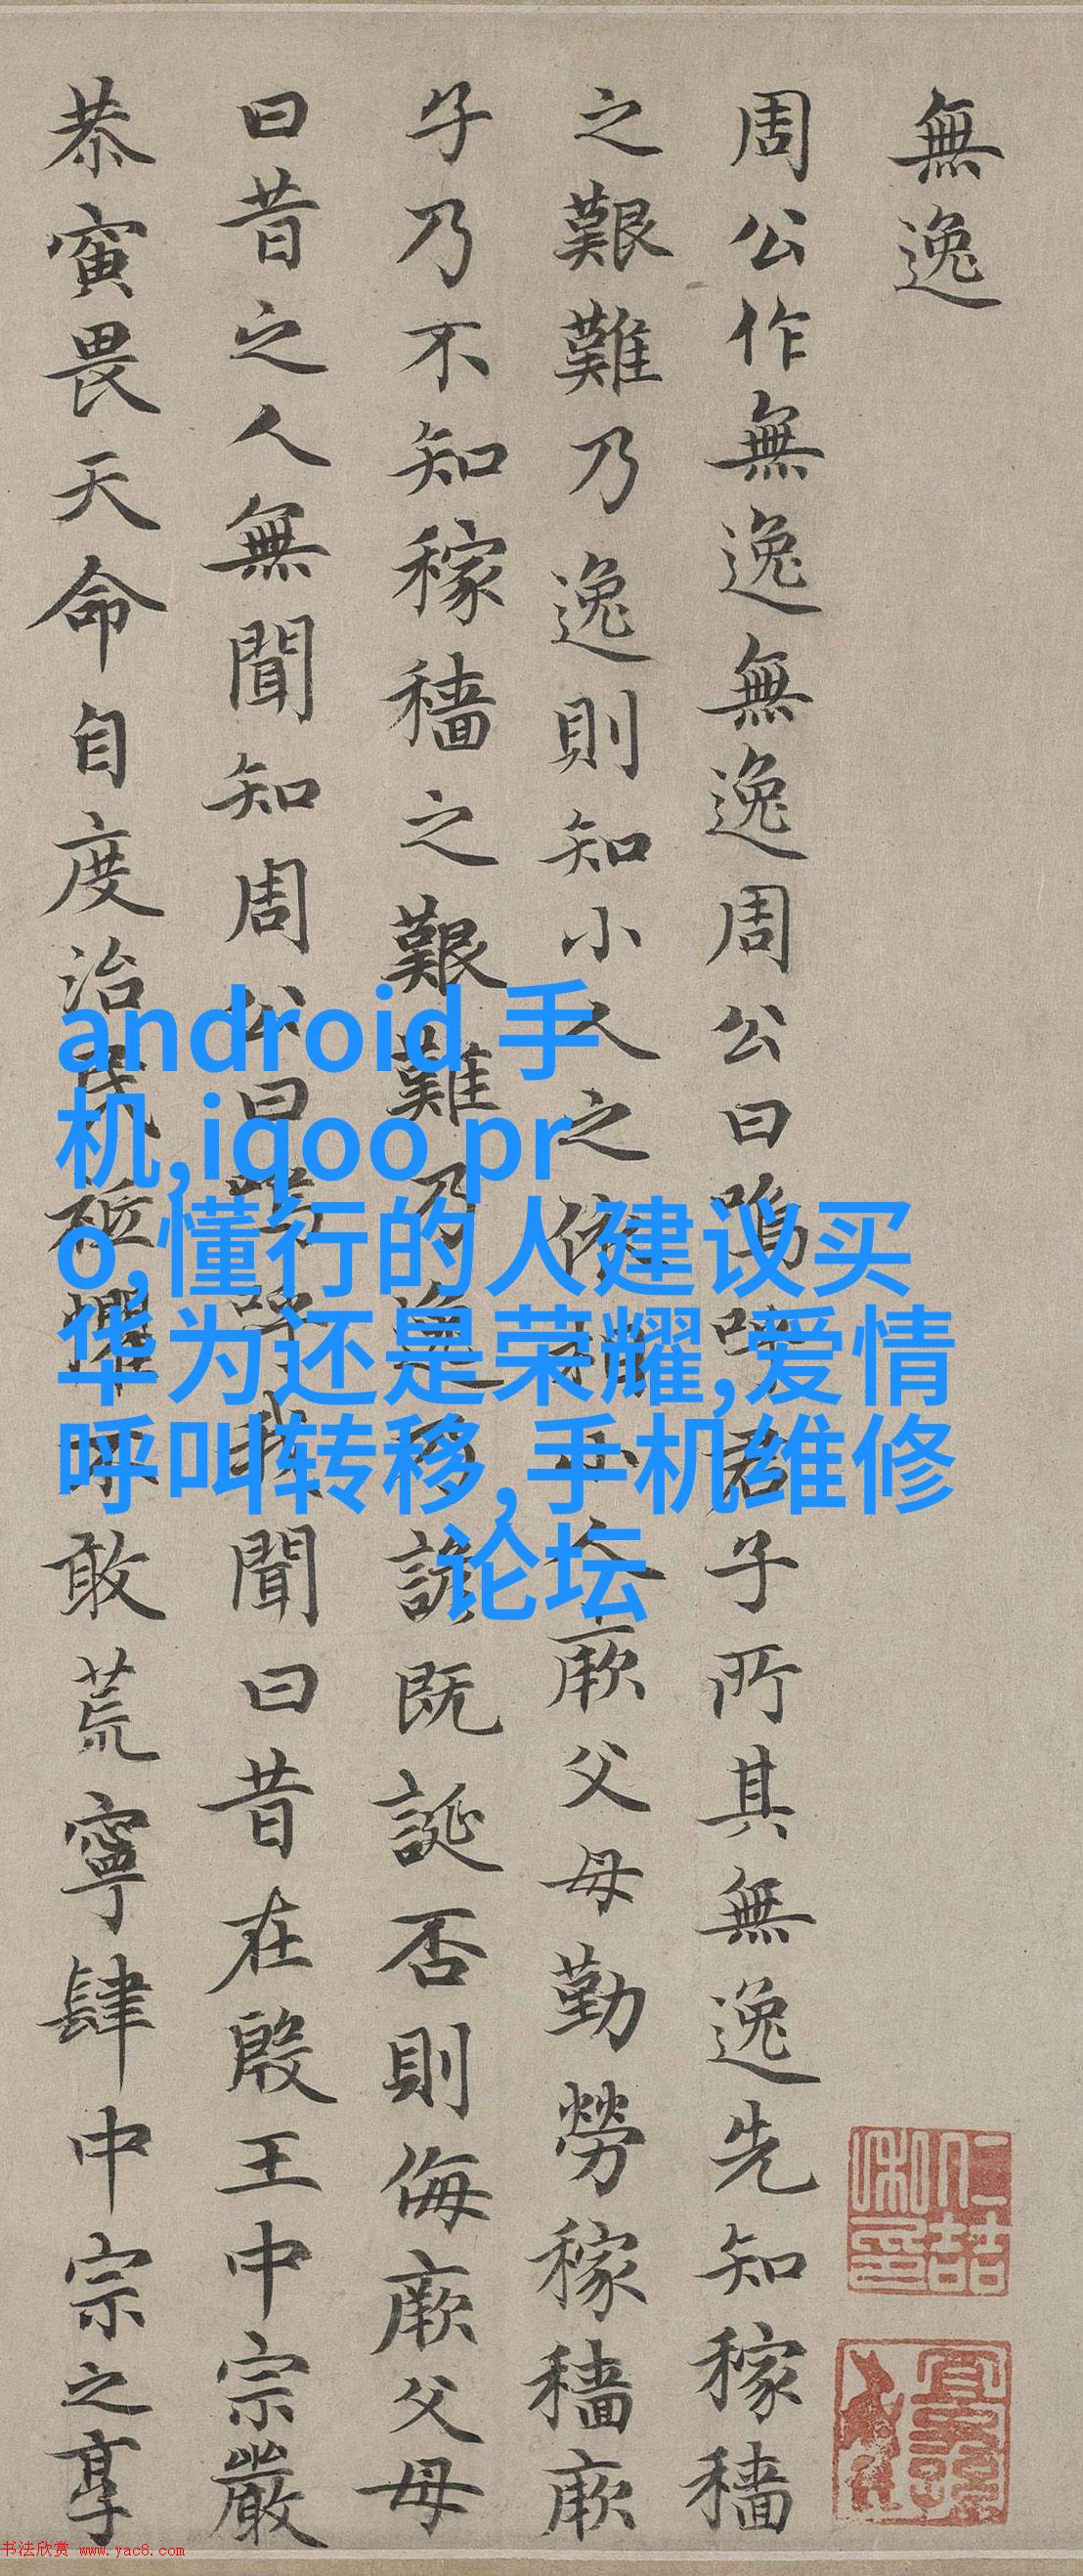 無逸
周公作無逸無逸周公曰嗚呼君子所其無逸先知稼穡
之艱難乃逸則知小人之依相小人厥父母勤勞稼穡厥
子乃不知稼穡之艱難乃逸乃諺既誕否則侮厥父母
曰昔之人無聞知周公曰嗚呼我聞曰昔在殷王中宗嚴
恭寅畏天命自度治民祗懼不敢荒寧肆中宗之享
android 手
机,iqoo pr
o,懂行的人建议买
华为还是荣耀,爱情
呼叫转移,手机维修
论坛
书法欣赏 www.yac8.com